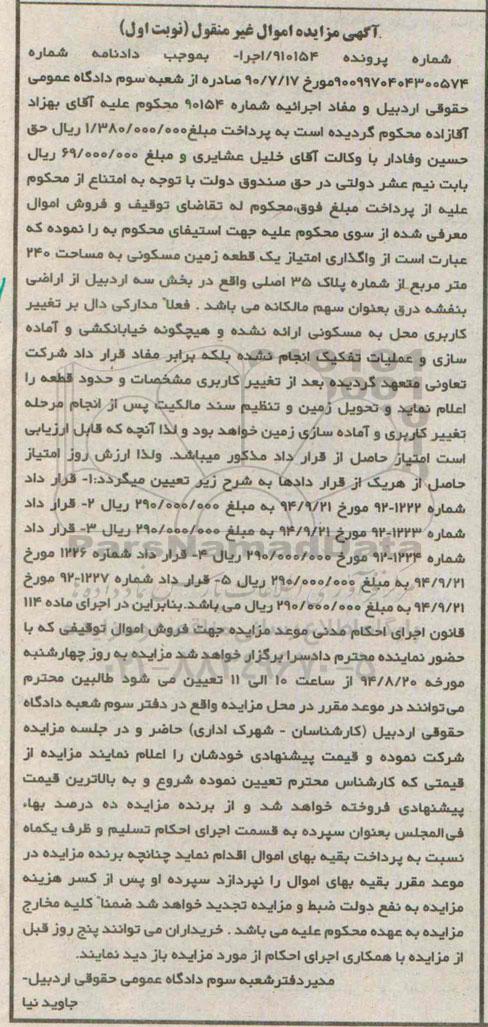 آگهی مزایده اموال غیر منقول (نوبت اول)
شماره پرونده ۹۱۰۱۵۴/اجرا- بموجب دادنامه شماره
۹۰۰۹۹۷۰۴۰۴۳۰۰۵۷۴مورخ ۹۰/۷/۱۷ صادره از شعبه سوم دادگاه عمومی
حقوقی اردبیل و مفاد اجرائیه شماره ۹۰۱۵۴ محکوم علیه آقای بهزاد
آقازاده محکوم گردیده است به پرداخت مبلغ۱/۳۸۰/۰۰۰/۰۰۰ ریال حق
حسین وفادار با وکالت آقای خلیل عشایری و مبلغ ۶۹/۰۰۰/۰۰۰ ریال
بابت نیم عشر دولتی در حق صندوق دولت با توجه به امتناع از محکوم
علیه از پرداخت مبلغ فوق،محکوم له تقاضای توقیف و فروش اموال
معرفی شده از سوی محکوم علیه جهت استیفای محکوم به را نموده که
عبارت است از واگذاری امتیاز یک قطعه زمین مسکونی به مساحت ۲۴۰
متر مربع از شماره پلاک ۳۵ اصلی واقع در بخش سه اردبیل از اراضی
بنفشه درق بعنوان سهم مالکانه می باشد . فعلاً مدارکی دال بر تغییر
کاربری محل به مسکونی ارائه نشده و هیچگونه خیابانکشی و آماده
سازی و عملیات تفکیک انجام نشده بلکه برابر مفاد قرار داد شرکت
تعاونی متعهد گردیده بعد از تغییر کاربری مشخصات و حدود قطعه را
اعلام نماید و تحویل زمین و تنظیم سند مالکیت پس از انجام مرحله
تغییر کاربری و آماده سازی زمین خواهد بود و لذا آنچه که قابل ارزیابی
است امتیاز حاصل از قرار داد مذکور میباشد. ولذا ارزش روز امتیاز
حاصل از هریک از قرار دادها به شرح زیر تعیین میگردد:۱- قرار داد
شماره ۱۲۲۲-۹۲ مورخ ۹۴/۹/۲۱ به مبلغ ۲۹۰/۰۰۰/۰۰۰ ریال ۲- قرار داد
شماره ۱۲۲۳-۹۲ مورخ ۹۴/۹/۲۱ به مبلغ ۲۹۰/۰۰۰/۰۰۰ ریال ۳- قرار داد
شماره ۱۲۲۴-۹۲ مورخ ۲۹۰/۰۰۰/۰۰۰ ریال ۴- قرار داد شماره ۱۲۲۶ مورخ
۹۴/۹/۲۱ به مبلغ ۲۹۰/۰۰۰/۰۰۰ ریال ۵- قرار داد شماره ۱۲۲۷-۹۲ مورخ
۹۴/۹/۲۱ به مبلغ ۲۹۰/۰۰۰/۰۰۰ ریال می باشد.بنابراین در اجرای ماده ۱۱۴
قانون اجرای احکام مدنی موعد مزایده جهت فروش اموال توقیفی که با
حضور نماینده محترم دادسرا برگزار خواهد شد مزایده به روز چهارشنبه
مورخه ۹۴/۸/۲۰ از ساعت ۱۰ الی ۱۱ تعیین می شود طالبین محترم
می‌توانند در موعد مقرر در محل مزایده واقع در دفتر سوم شعبه دادگاه
حقوقی اردبیل (کارشناسان - شهرک اداری) حاضر و در جلسه مزایده
شرکت نموده و قیمت پیشنهادی خودشان را اعلام نمایند مزایده از
قیمتی که کارشناس محترم تعیین نموده شروع و به بالاترین قیمت
پیشنهادی فروخته خواهد شد و از برنده مزایده ده درصد بهاء
فی‌المجلس بعنوان سپرده به قسمت اجرای احکام تسلیم و ظرف یکماه
نسبت به پرداخت بقیه بهای اموال اقدام نماید چنانچه برنده مزایده در
موعد مقرر بقیه بهای اموال را نپردازد سپرده او پس از کسر هزینه
مزایده به نفع دولت ضبط و مزایده تجدید خواهد شد ضمناً کلیه مخارج
مزایده به عهده محکوم علیه می باشد . خریداران می توانند پنج روز قبل
از مزایده با همکاری اجرای احکام از مورد مزایده باز دید نمایند.
مدیردفترشعبه سوم دادگاه عمومی حقوقی اردبیل-
جاوید نیا
ParsNamadData